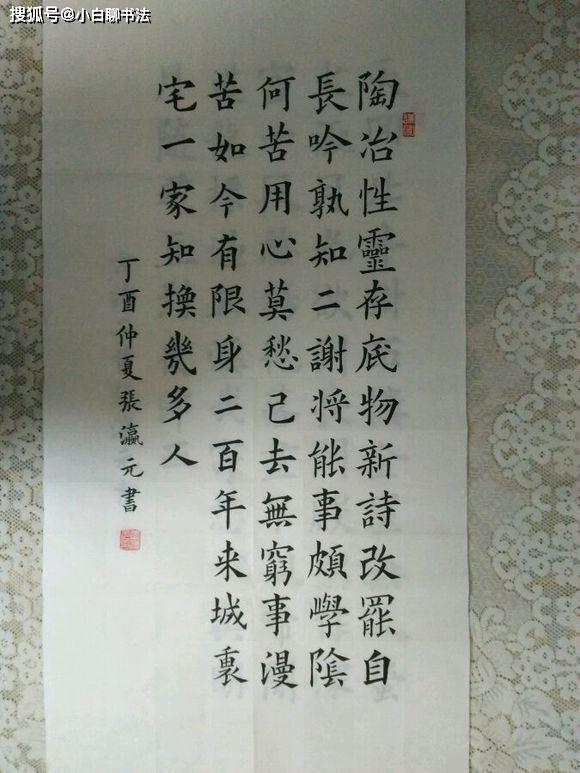 搜狐号@小白聊书法
陶冶性靈存底物新詩改罷自
長吟孰知二謝将能事頗學陰
何苦用心莫愁己去無窮事漫
苦如今有限身二百年来城裏
宅一家知換幾多人
丁酉仲夏張瀛元書